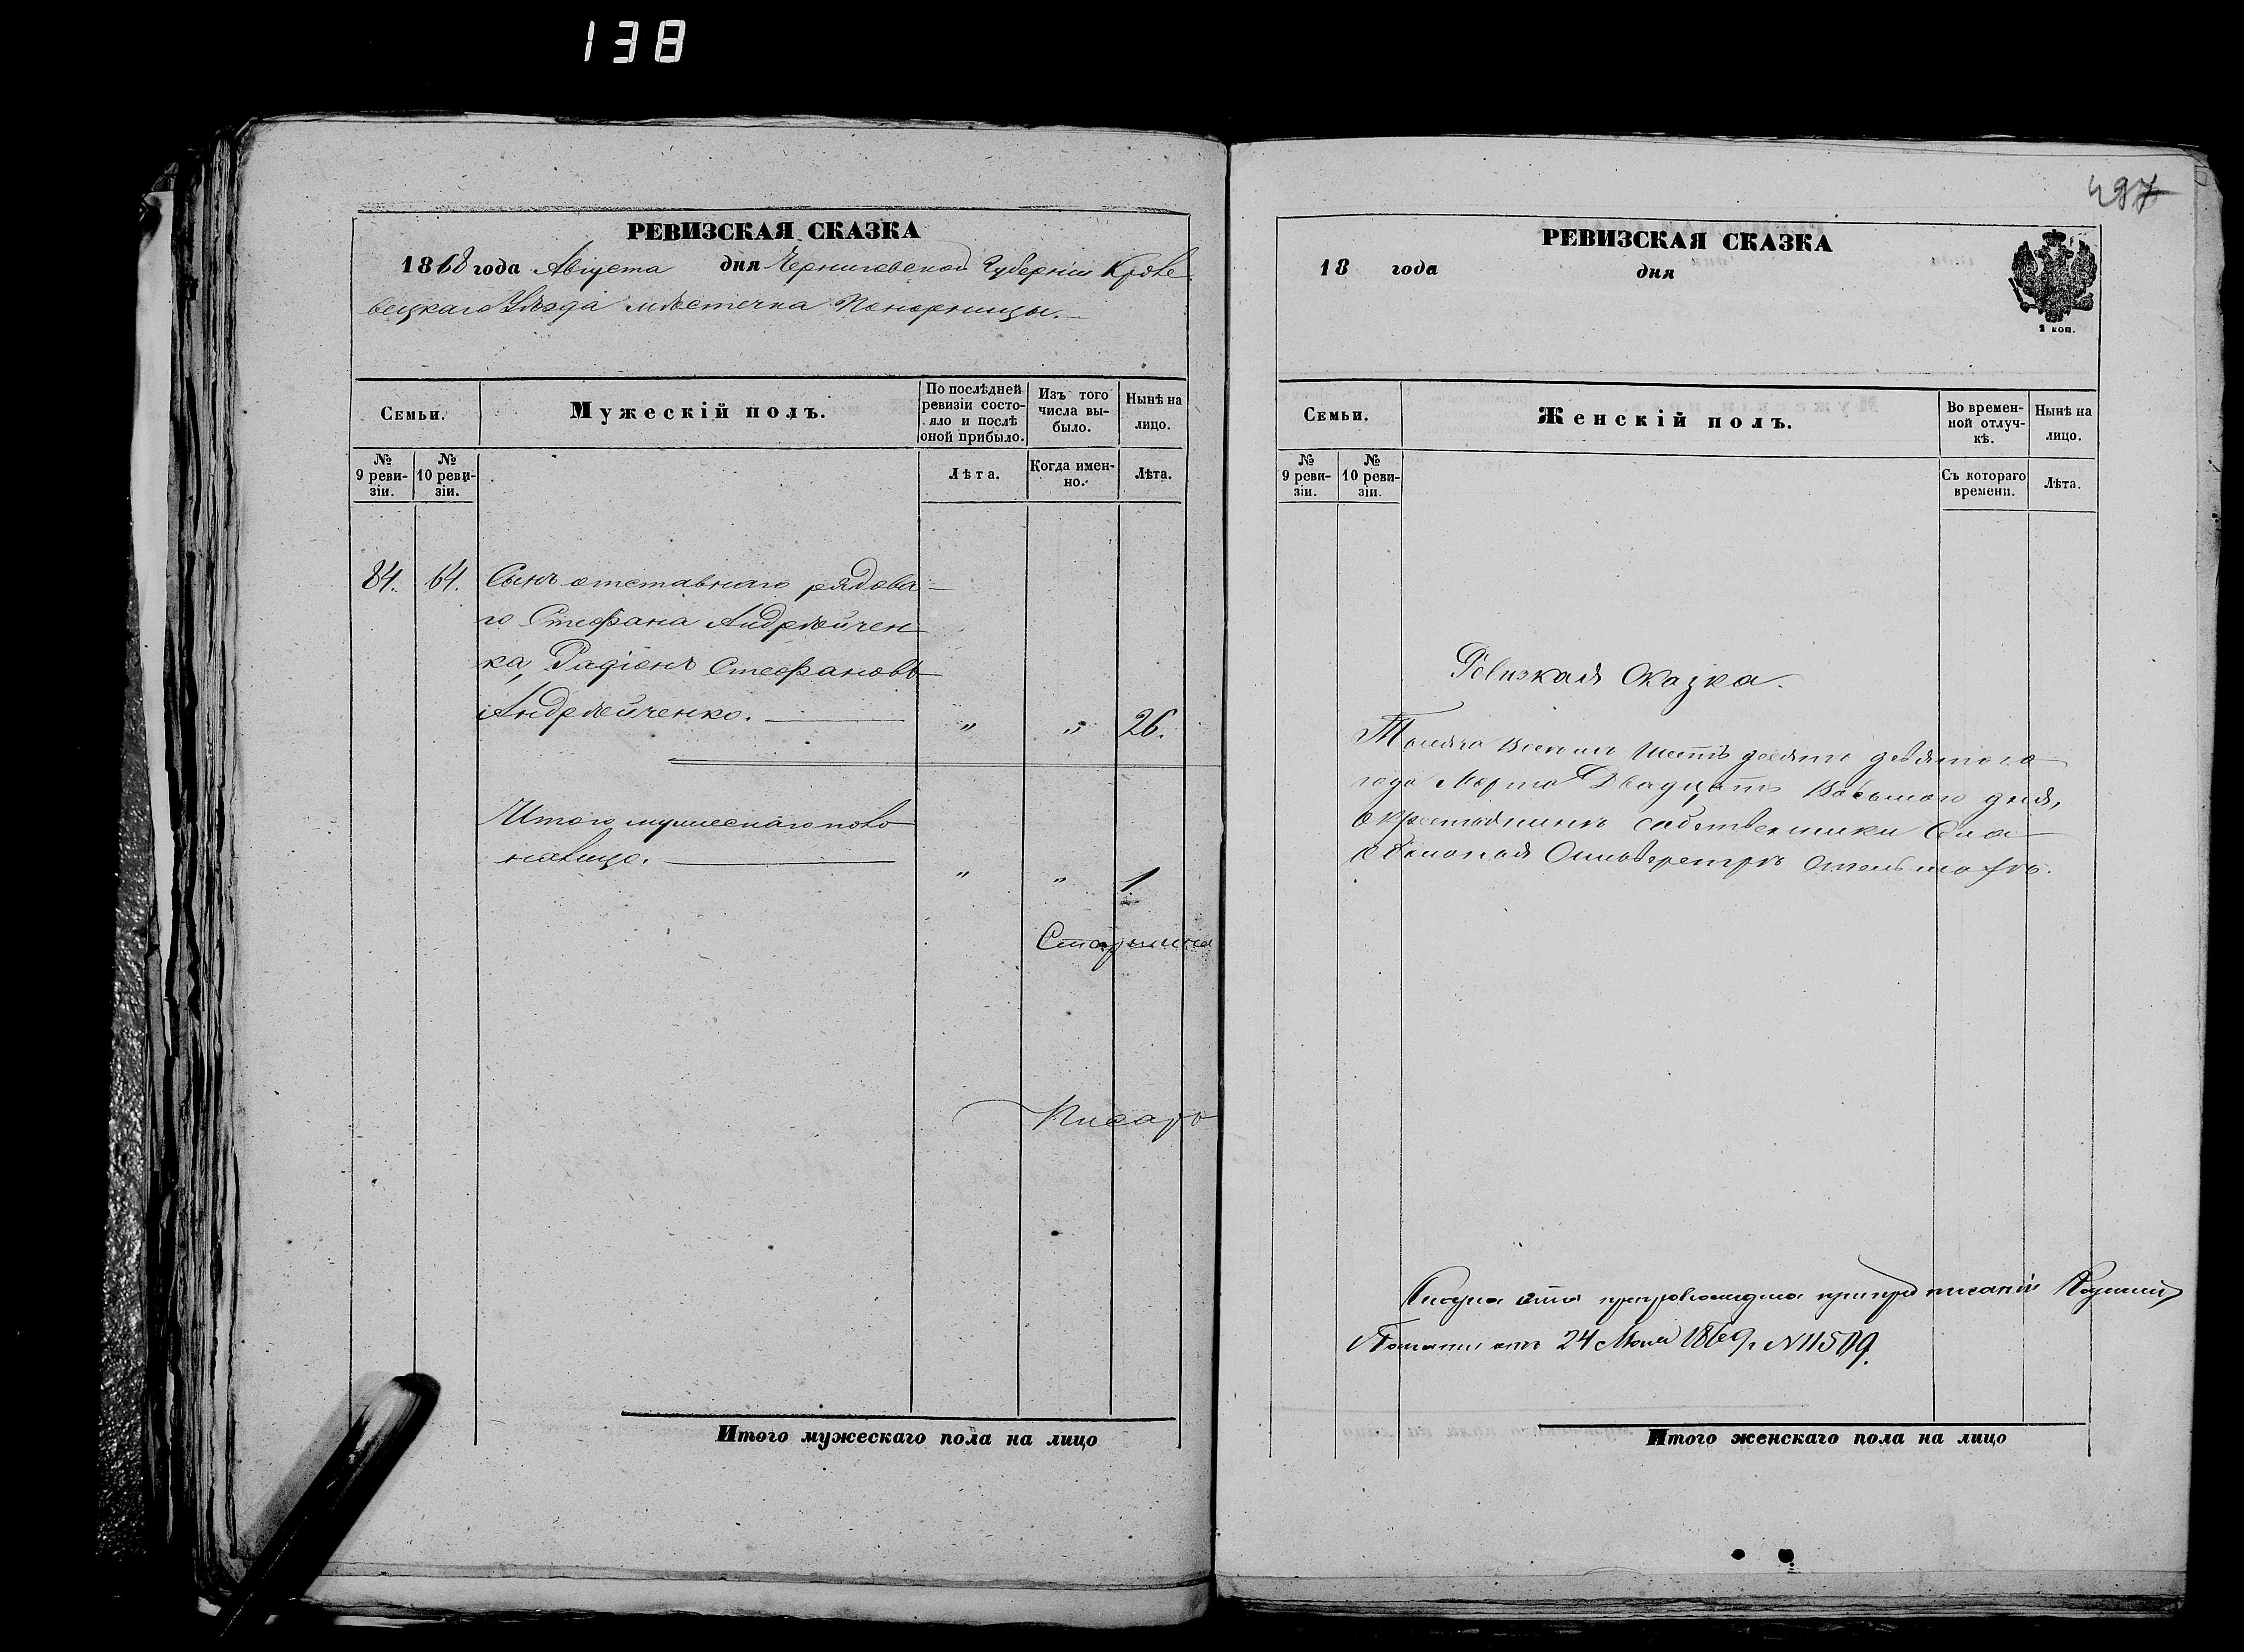 138
РЕВИЗСКАЯ СКАЗКА
1868 года Августа дня Черниговской Губерніи Кроле
вецкаго Уѣзда мѣстечка Понорницы.
Семьи.
Мужескій полъ.
По послѣдней ревизіи состояло и послѣ оной прибыло.
Изъ того числа выбыло.
Нынѣ на лицо.
№ 9 ревизіи.
№ 10 ревизіи.
Лѣта.
Когда именно.
Лѣта.
84. 64. Сынъ отставнаго рядова
го Стефана Андрѣйчен
ка, Радіонъ Стефановъ
Андрѣйченко. „ „ 26.
Итого мужескаго пола
налицо. „ „ 1
Старшина
Писарь
Итого мужескаго пола на лицо
497
РЕВИЗСКАЯ СКАЗКА
18 года дня
2 коп.
Семьи.
Женскій полъ.
Во временной отлучкѣ.
Нынѣ на лицо.
№ 9 ревизіи.
№ 10 ревизіи.
Съ котораго времени.
Лѣта.
Ревизкая Сказка.
Тысяча восемь шестьдесятъ девятого
года Марта Двадцать Восьмого дня,
о крестьянинѣ собственники
Сказка эта препровождена при предписаніи Казенной
Палаты отъ 24 1869 г №11509.
Итого женскаго пола на лицо